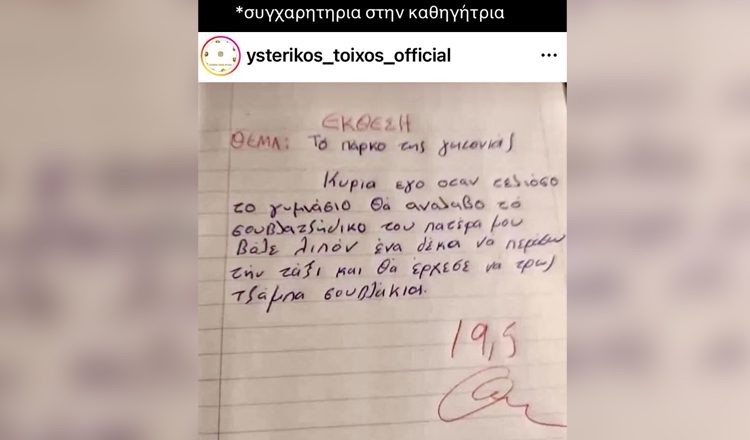 *συγχαρητηρια στην καθηγήτρια
ysterikos_toixos_official
ΕΚΘΕΣΗ
ΘΕΜΑ: Το παρκο της γητονιάς
Κυρια εγο οσαν τελιόσο
το γυμνάσιο θά αναλαβο τό
σουβλατζήδικο του πατέρα μου
βάλε λιπόν ένα δέκα να περάσω
τήν τάξι και θά έρχεσε να τρως
τζάμπα σουβλάκια.
19,5